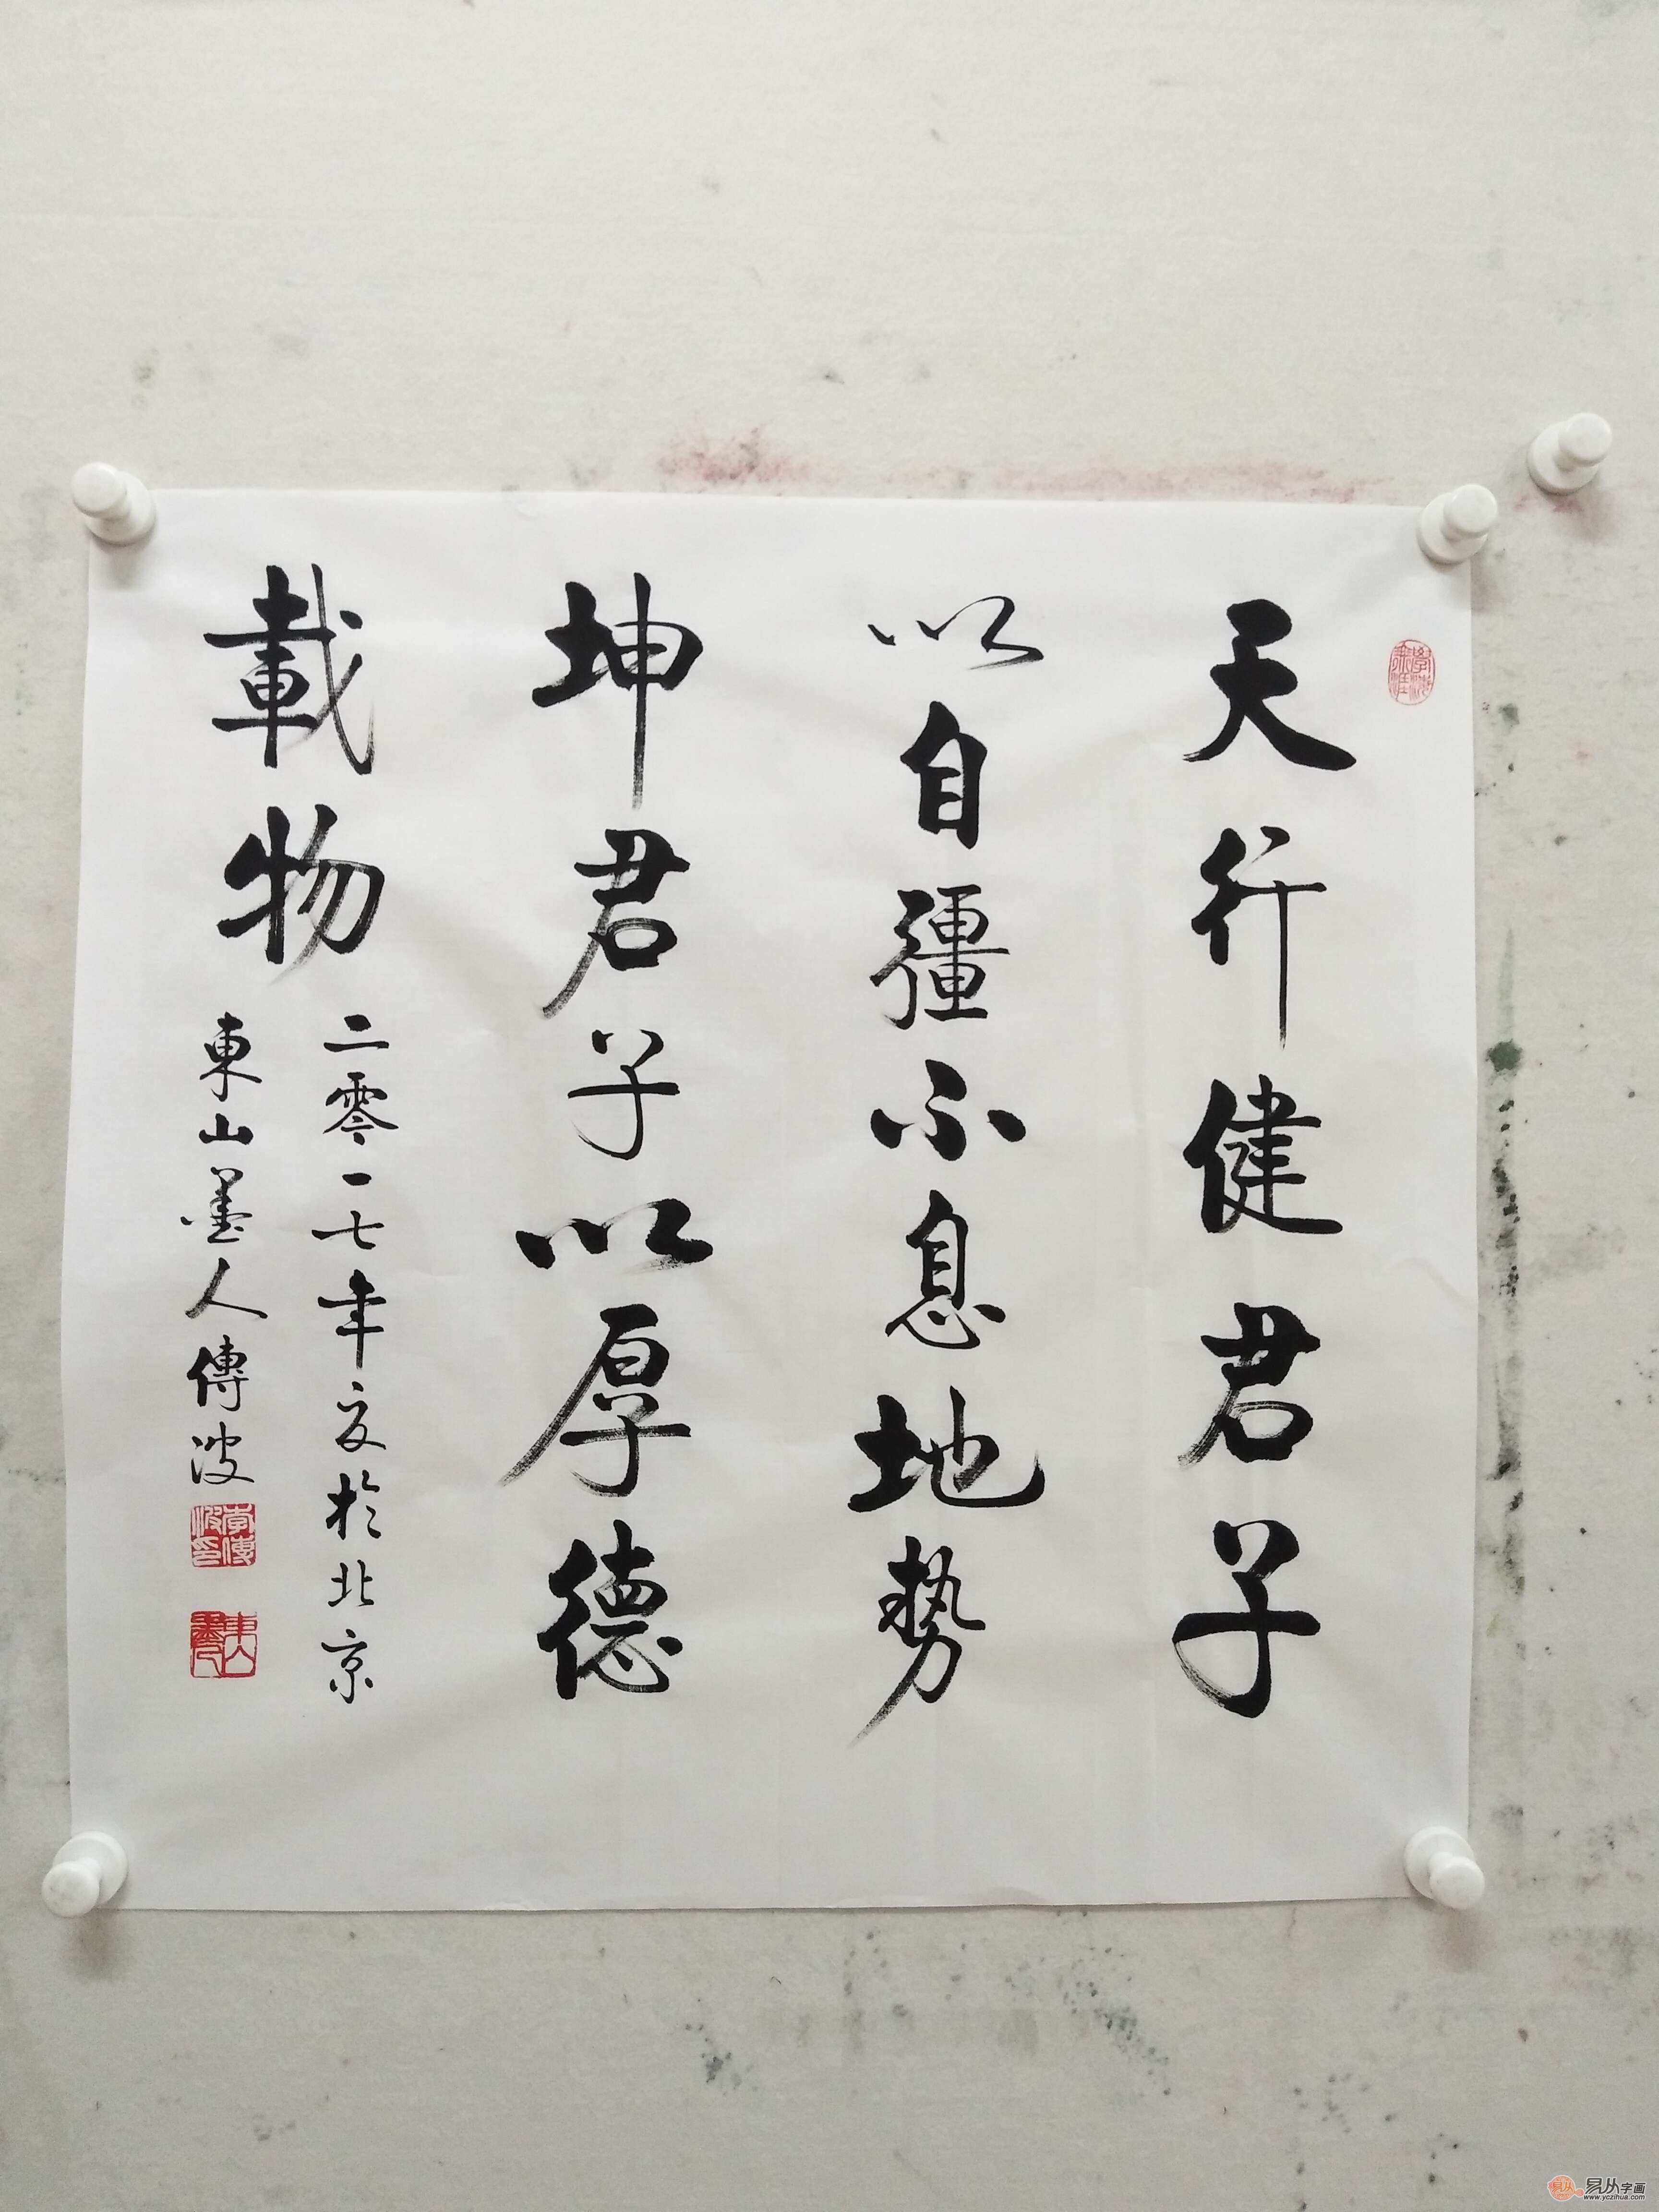 天行健君子
以自彊不息地勢
坤君子以厚德
載物
二零一七年夏於北京
東山墨人傳波
李傳波印
東山墨人
易从字画
www.yczihua.com